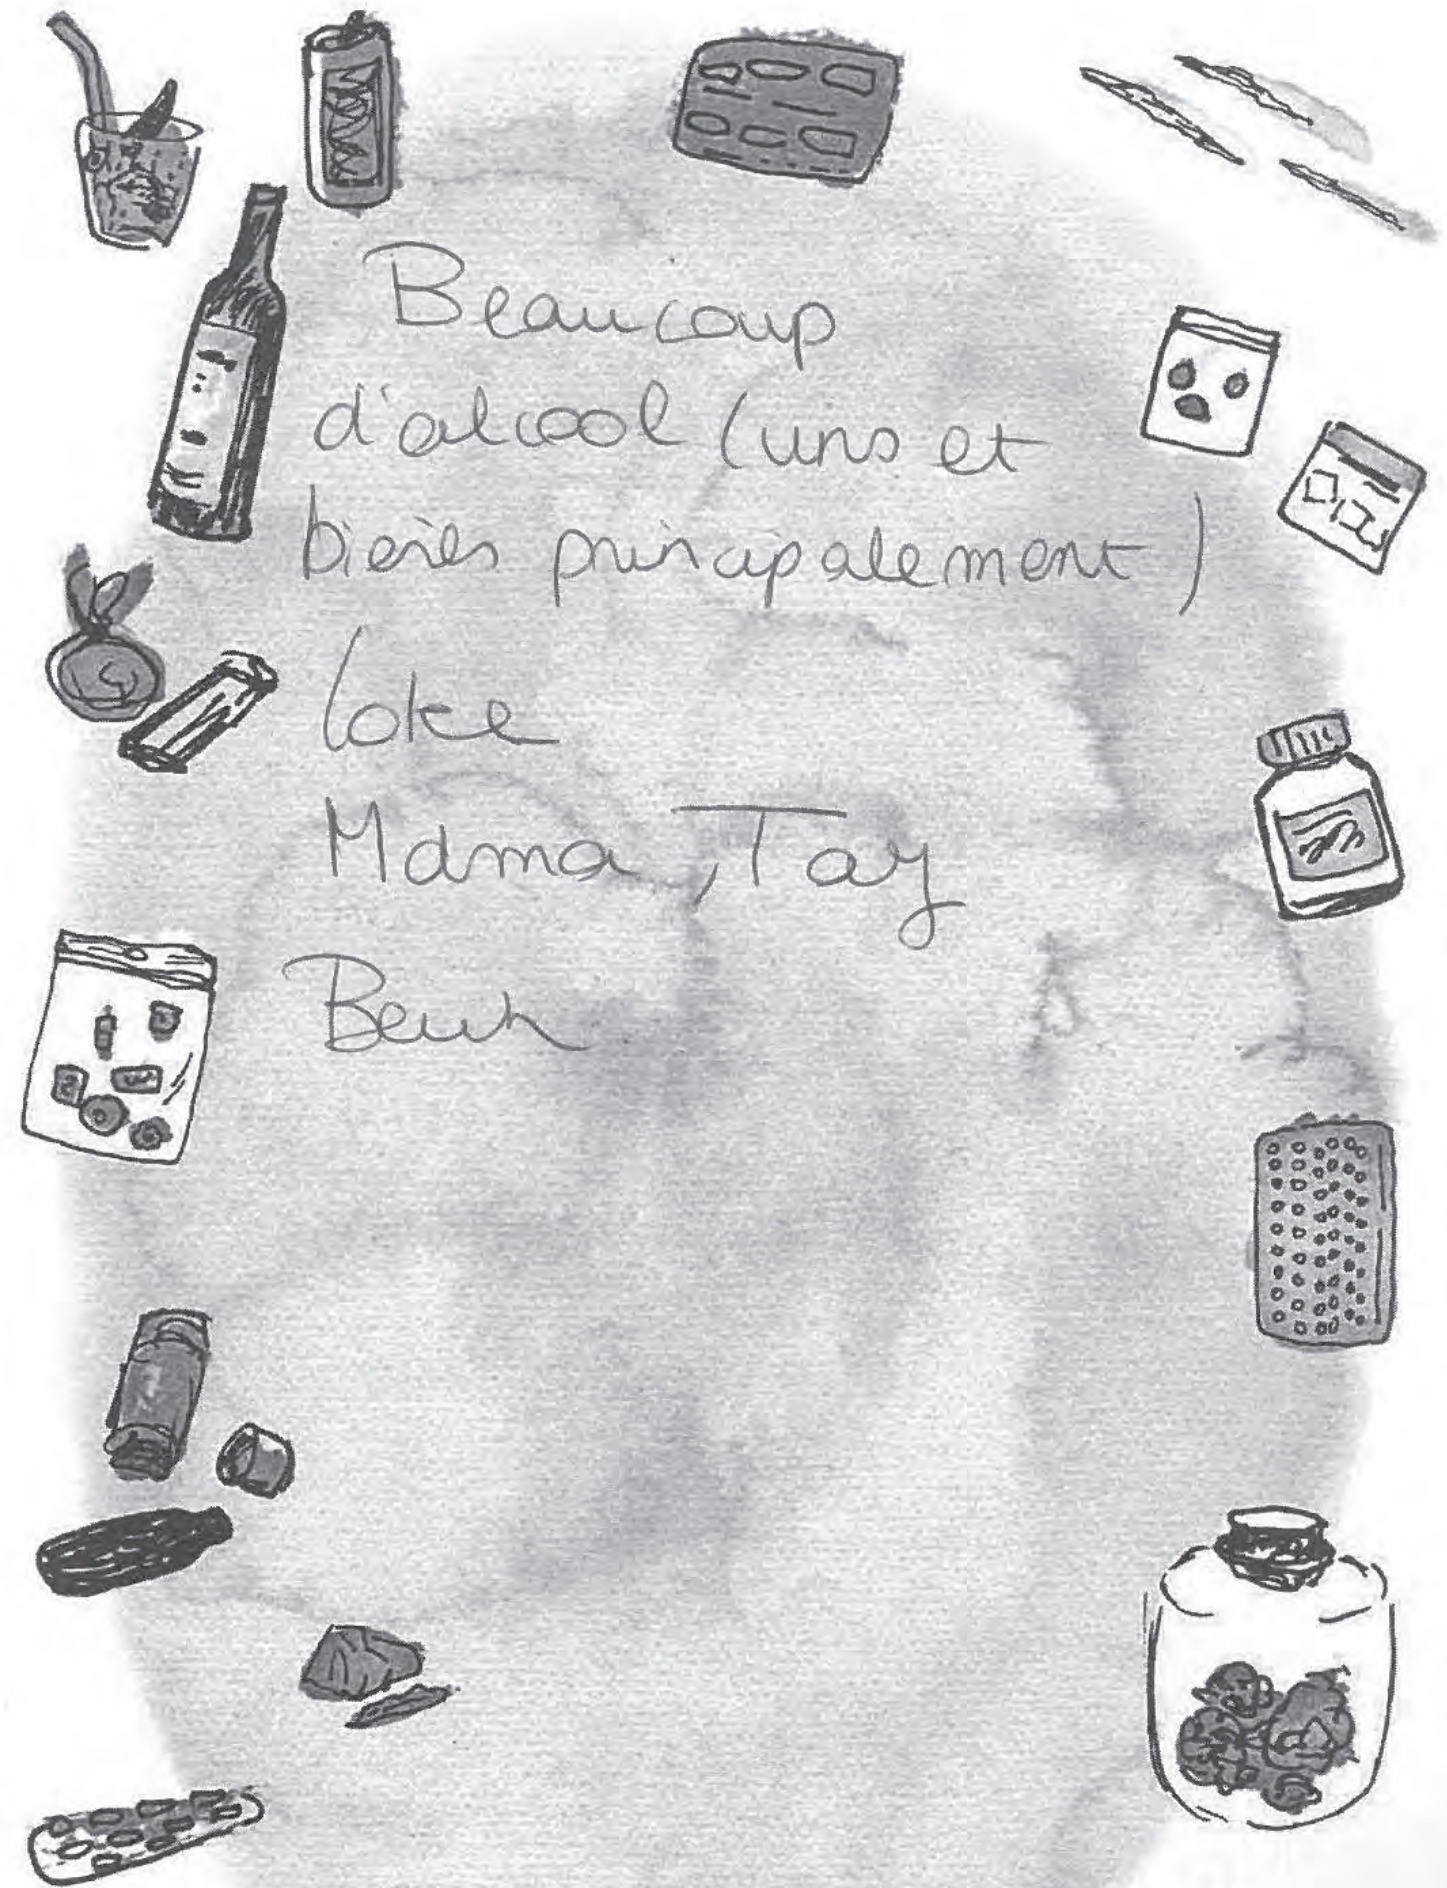 Beaucoup
d'alcool (vins et
bières principalement)
Coke
Mdma, Taz
Beuh